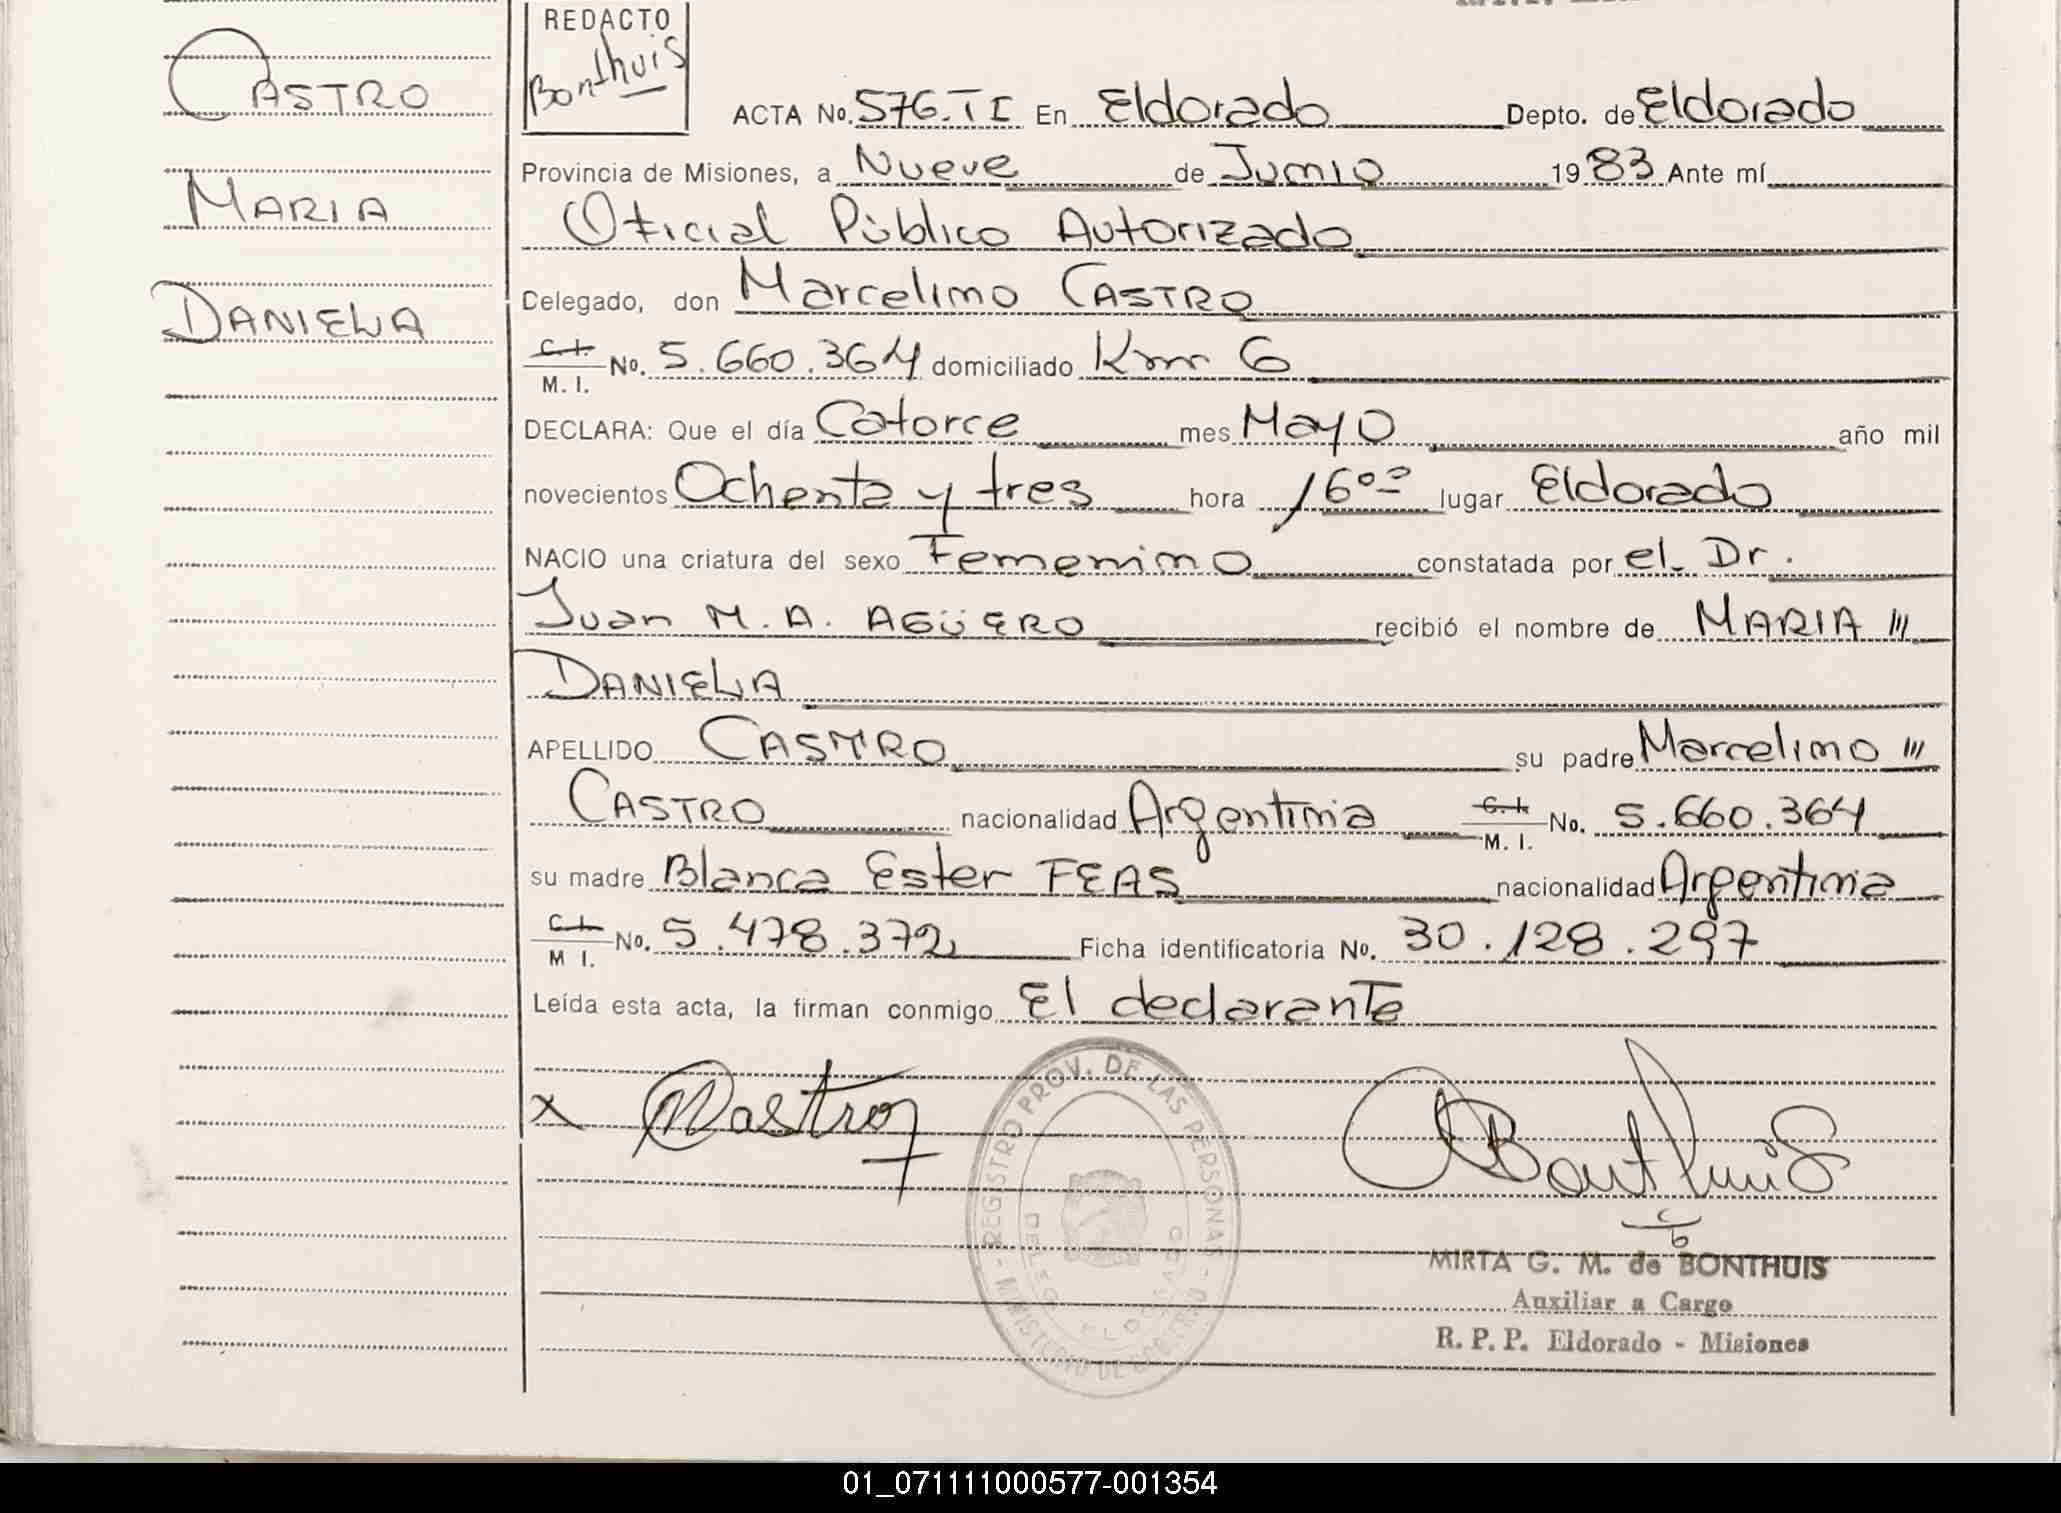 CASTRO
MARIA
DANIELA
REDACTO
Bonthuis
ACTA No. 576. T I En Eldorado Depto. de Eldorado
Provincia de Misiones, a Nueve de Junio 1983 Ante mí
Oficial Público Autorizado
Delegado, don Marcelino CASTRO
C.I. M. I. No. 5.660.364 domiciliado Km 6
DECLARA: Que el día Catorce mes Mayo año mil
novecientos Ochenta y tres hora 16°° lugar Eldorado
NACIO una criatura del sexo Femenino constatada por el Dr.
Juan M. A. AGÜERO recibió el nombre de MARIA ///
DANIELA
APELLIDO CASTRO su padre Marcelino ///
CASTRO nacionalidad Argentina C.I. M. I. No. 5.660.364
su madre Blanca Ester FEAS nacionalidad Argentina
C.I. M I. No. 5.478.372 Ficha identificatoria No. 30.128.297
Leída esta acta, la firman conmigo El declarante
x Mastro
Bonthuis
REGISTRO PROV. DE LAS PERSONAS - MINISTERIO DE GOBIERNO -
DELEG. ELDORADO
MIRTA G. M. de BONTHUIS
Auxiliar a Cargo
R. P. P. Eldorado - Misiones
01_071111000577-001354